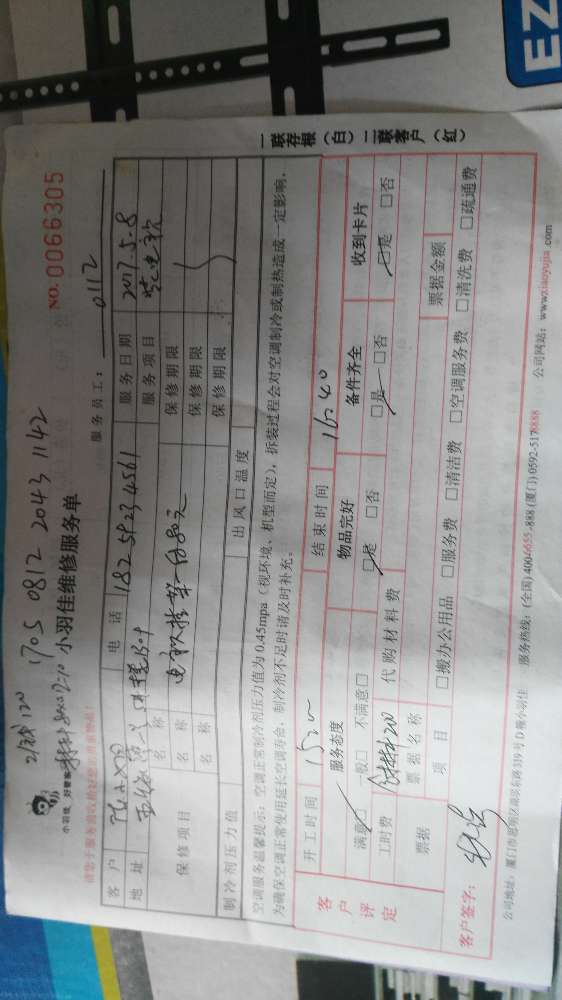 EZ
1705 0812 2043 1142
NO.0066305
小羽佳 好管家
小羽佳维修服务单
服务员工： 0112
客户
电话 182 5923 4561
服务日期 2017.5.8
地址
服务项目 装电视
保修项目
名称
保修期限
名称
保修期限
名称
保修期限
制冷剂压力值
出风口温度
空调服务温馨提示：空调正常制冷剂压力值为0.45mpa（视环境、机型而定），拆装过程会对空调制冷或制热造成一定影响，
为确保空调正常使用延长空调寿命，制冷剂不足时请及时补充。
一联存根（白） 二联客户（红）
客户评定
开工时间
结束时间 16:40
服务态度
物品完好
备件齐全
收到卡片
满意□ 一般□ 不满意□
□是 □否
□是 □否
□是 □否
工时费
代购材料费
票据
票据名称
票据金额
项目
□搬办公用品 □服务费 □清洁费 □空调服务费 □清洗费 □疏通费
客户签字：
公司地址：厦门市思明区湖滨东路319号D幢小羽佳 服务热线：(全国)4006655-888 (厦门)0592-5178888 公司网站：www.xiaoyujia.com